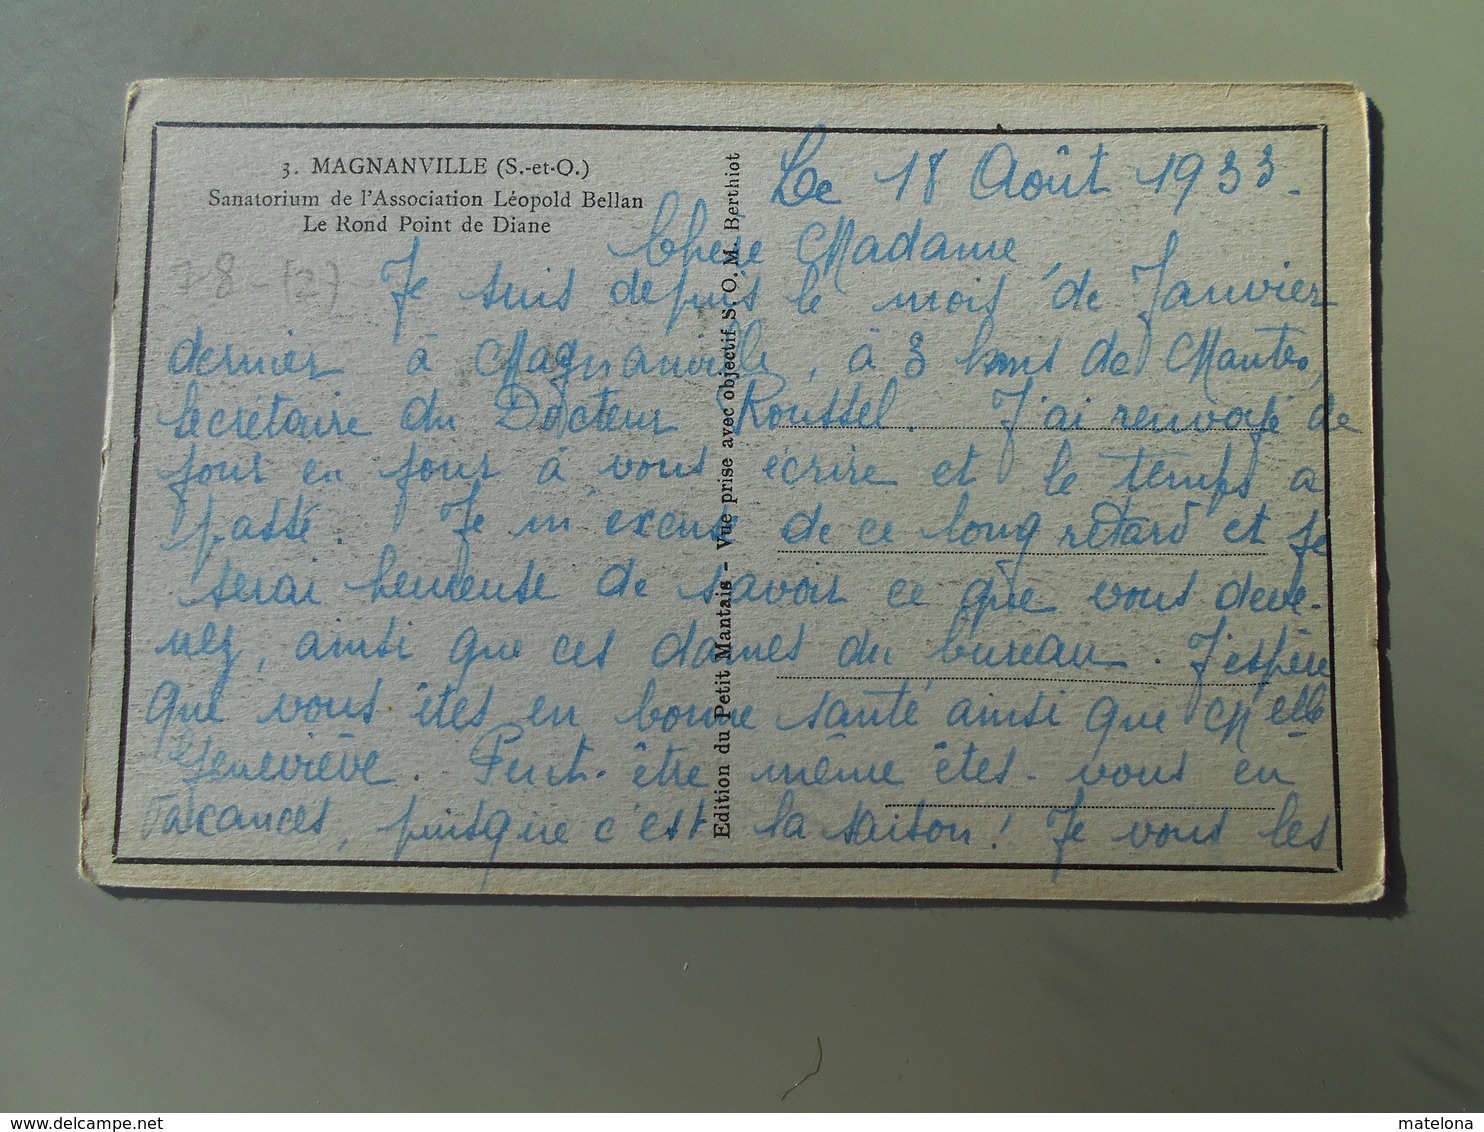 3. MAGNANVILLE (S.-et-O.)
Sanatorium de l'Association Léopold Bellan
Le Rond Point de Diane
78-(2)
Edition du Petit Mantais - Vue prise avec objectif S. O. M. Berthiot
Le 18 Août 1933-
Chère Madame,
Je suis depuis le mois de Janvier
dernier à Magnanville, à 3 kms de Mantes,
secrétaire du Docteur Roussel. J'ai renvoyé de
jour en jour à vous écrire et le temps a
passé. Je m'excuse de ce long retard et je
serai heureuse de savoir ce que vous deve-
nez, ainsi que ces dames du bureau. J'espère
que vous êtes en bonne santé ainsi que Melle
Geneviève. Peut-être même êtes-vous en
vacances, puisque c'est la saison! Je vous les
delcampe.net
matelona